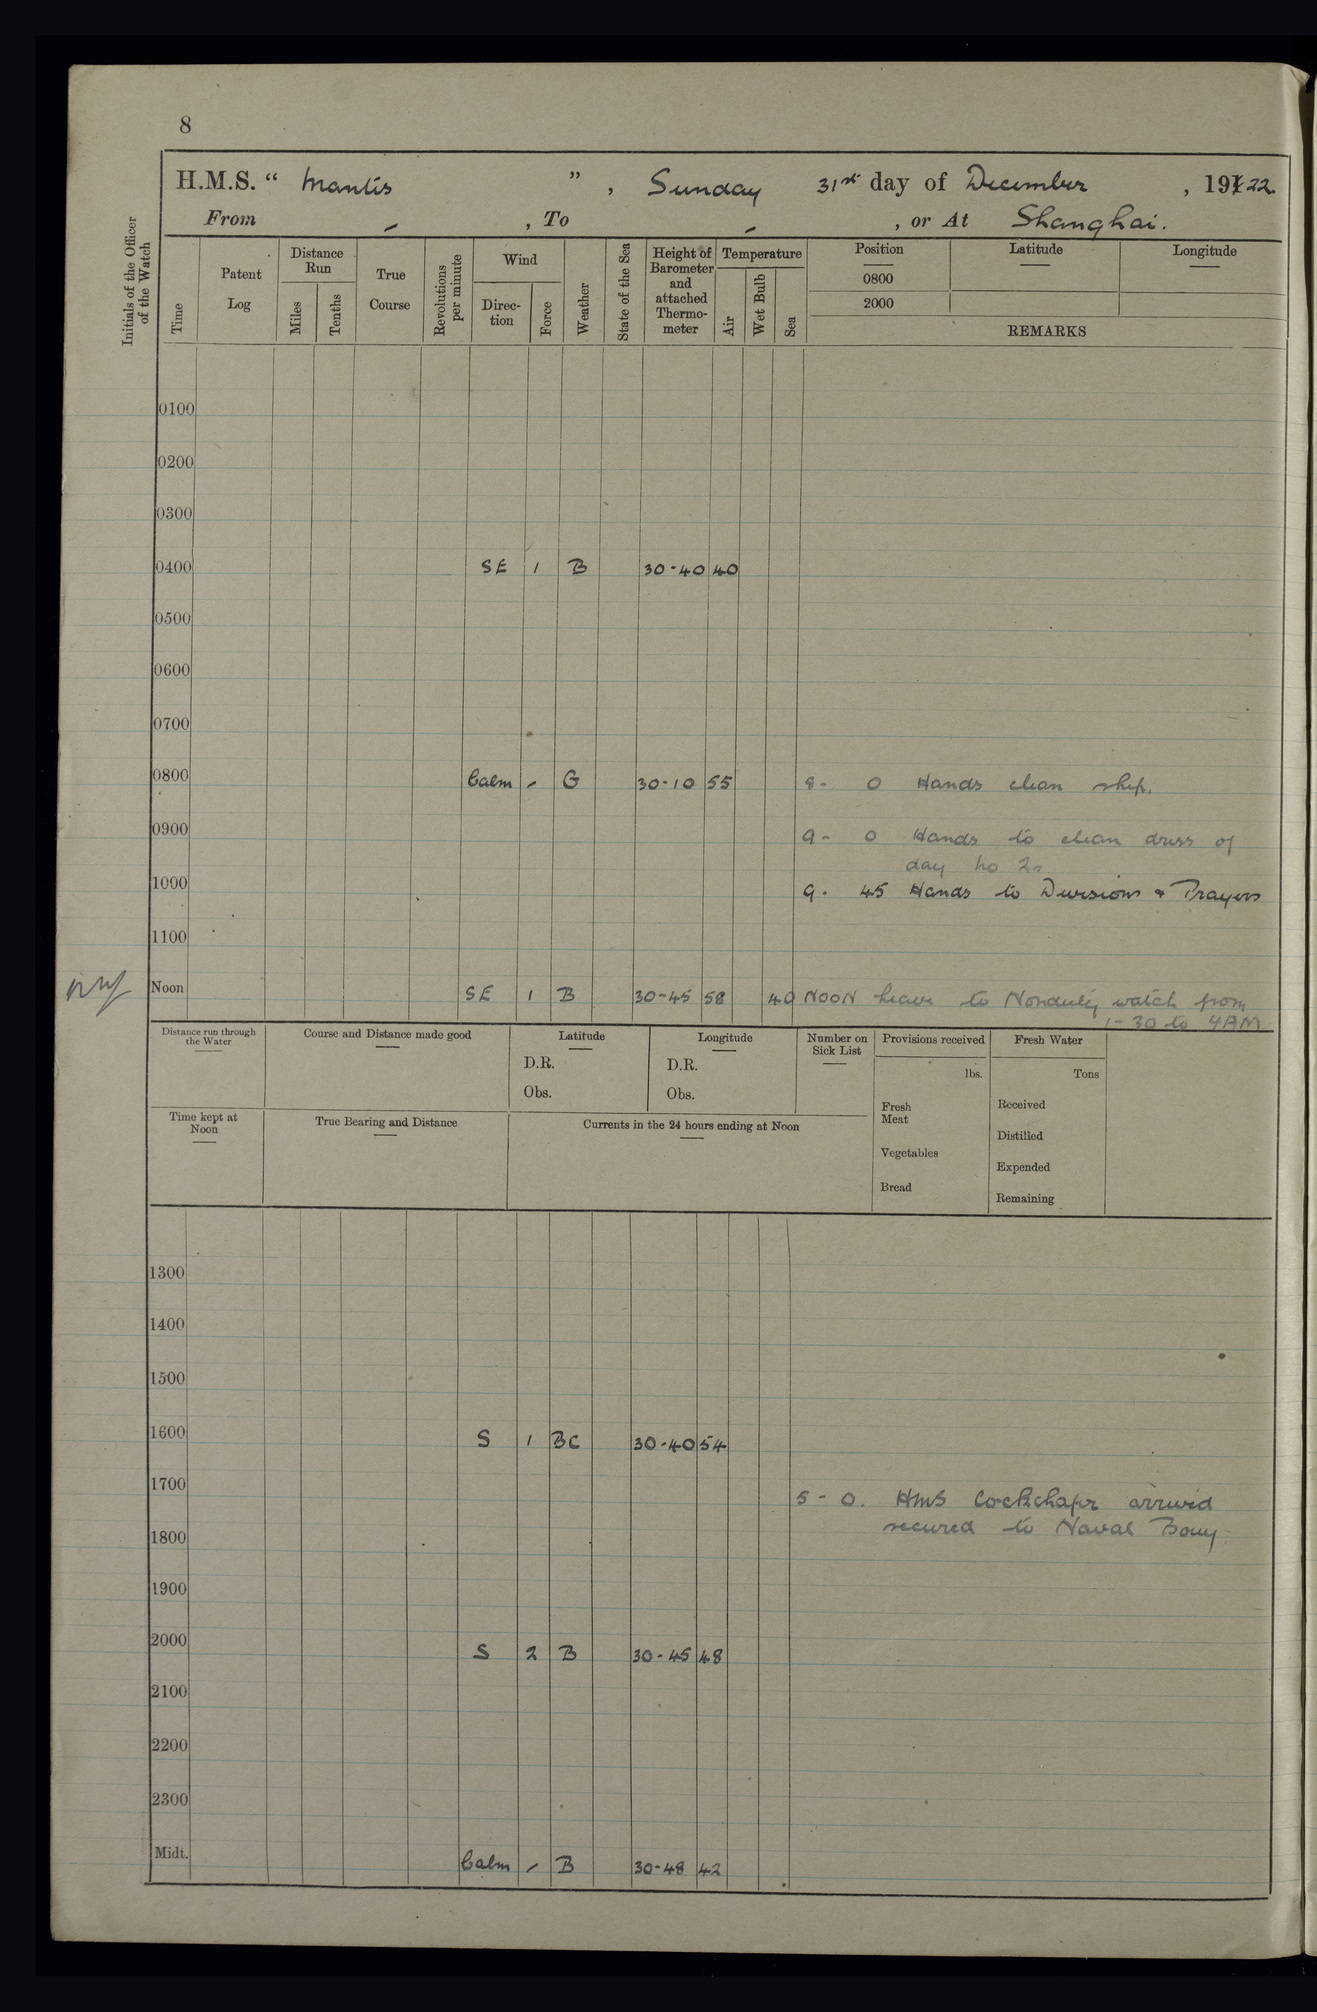 8
H.M.S. “ Mantis ” , Sunday 31st day of December , 1922
From - , To - , or At Shanghai.
Initials of the Officer of the Watch
Time
Patent Log
Distance Run
Miles
Tenths
True Course
Revolutions per minute
Wind
Direction
Force
Weather
State of the Sea
Height of Barometer and attached Thermometer
Temperature
Air
Wet Bulb
Sea
Position
Latitude
Longitude
0800
2000
REMARKS
0100
0200
0300
0400 SE 1 B 30-40 40
0500
0600
0700
0800 Calm - G 30-10 55 8- 0 Hands clean ship.
0900 9- 0 Hands to clean dress of
day No 2s
1000 9- 45 Hands to Divisions & Prayers
1100
Noon SE 1 B 30-45 58 40 NOON Leave to Nonduty watch from
1-30 to 4AM
Distance run through the Water
Course and Distance made good
Latitude
D.R.
Obs.
Longitude
D.R.
Obs.
Number on Sick List
Provisions received
lbs.
Fresh Meat
Vegetables
Bread
Fresh Water
Tons
Received
Distilled
Expended
Remaining
Time kept at Noon
True Bearing and Distance
Currents in the 24 hours ending at Noon
1300
1400
1500
1600 S 1 BC 30-40 54
1700 5- 0. HMS Cockchafer arrived
secured to Naval Bouy
1800
1900
2000 S 2 B 30-45 48
2100
2200
2300
Midt. Calm - B 30-48 42